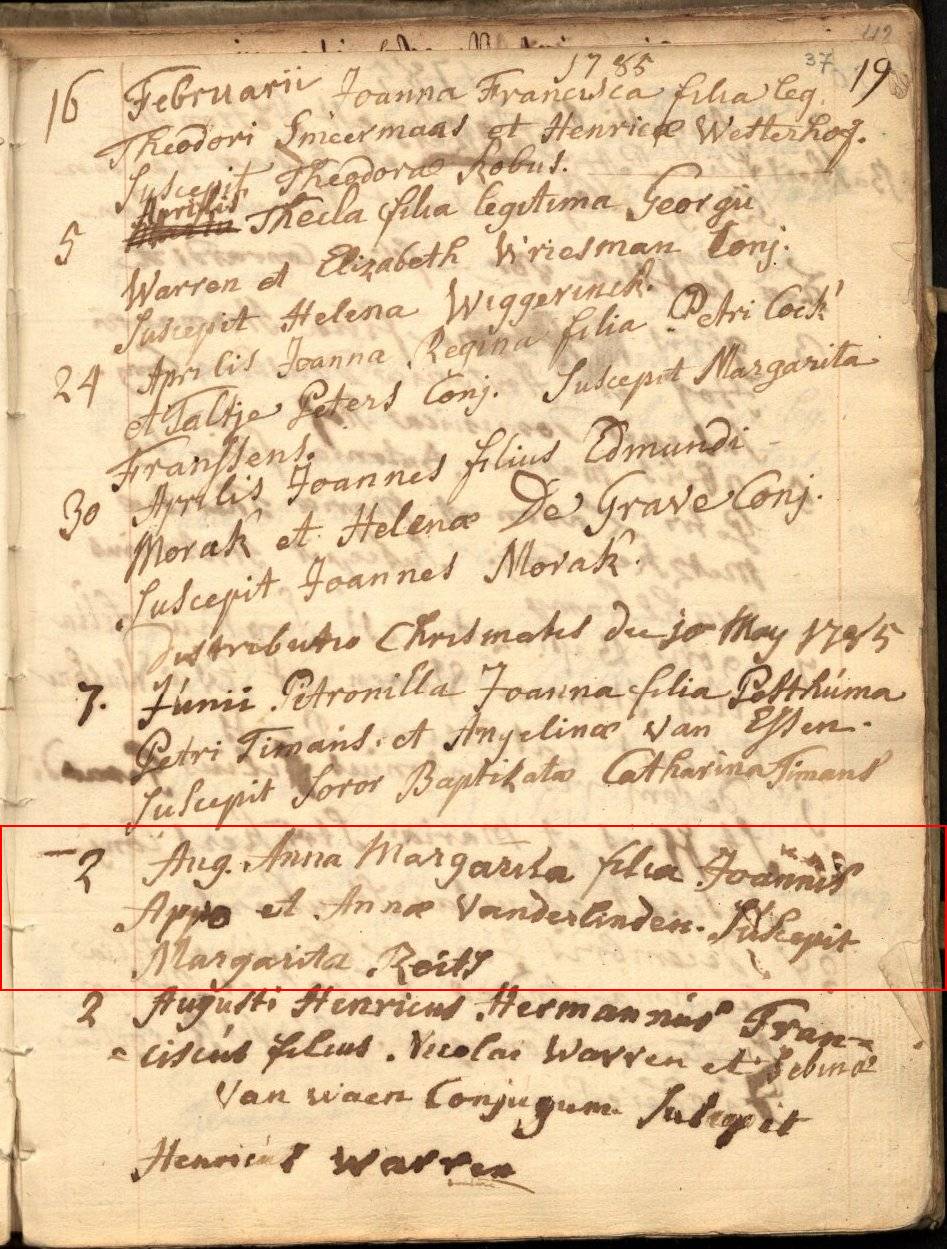 1785 37 19
16 Februarii Joanna Francisca filia leg.
Theodori Sniecrmaas et Henricæ Wetterhof.
Suscepit Theodoræ Robus.
Aprilis
5 Thecla filia legitima Georgii
Warren et Elizabeth Vriesman Conj.
Suscepit Helena Wiggerinck.
24 Aprilis Joanna Regina filia Petri Cock
et Taltje Peters Conj. Suscepit Margarita
Franssens.
30 Aprilis Joannes filius Edmundi
Morak et Helenæ De Grave Conj.
Suscepit Joannes Morak.
Distributio Chrismatis die 10 May 1785
7. Junii Petronilla Joanna filia Posthuma
Petri Timans. et Angelinæ van Essen.
Suscepit Soror Baptisatæ Catharina Timans
2 Aug. Anna Margarita filia Joannis
Appo et Annæ Vanderlinden. Suscepit
Margarita Reits
2 Augusti Henricus Hermannus Fran-
ciscus filius Nicolai Warren et Sebinæ
Van waen Conjugum Suscepit
Henricus Warren